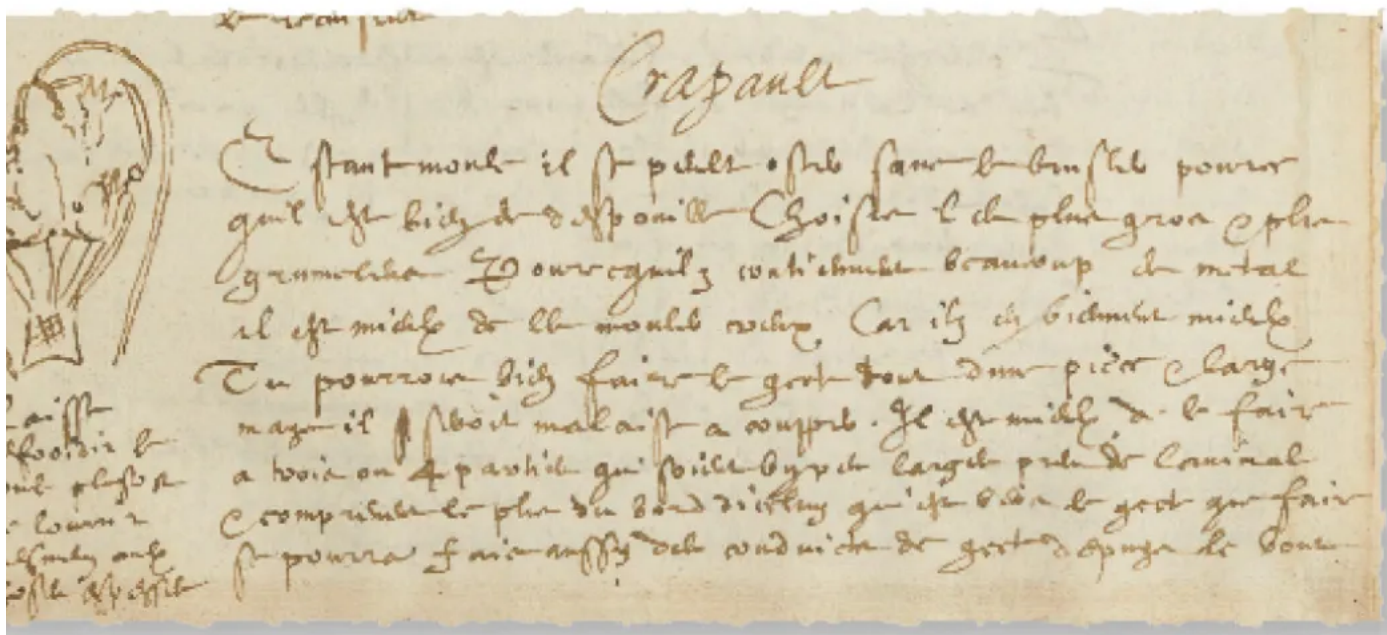 Crapault
Estant moule il se peult oster sans le brusler pource
quil est bien de despouille Choisis l de plus gros & plus
grumeleus Pourcequilz contienent beaucoup de metal
il est mieulx de les mouler creux Car ilz en vienent mieulx
Tu pourrois bien faire le gect tout dune piece & large
mays il seroit malaise a coupper. Il est mieulx de le faire
a trois ou 4 parties qui soient larges pres de lanimal
& comprenent le plus du bord dicelluy qui est vers le gect que faire
se pourra Fais aussy des conduicts de gect depuys le bout
aisse
froidir le
plustost
louvrir
aulx
espesses